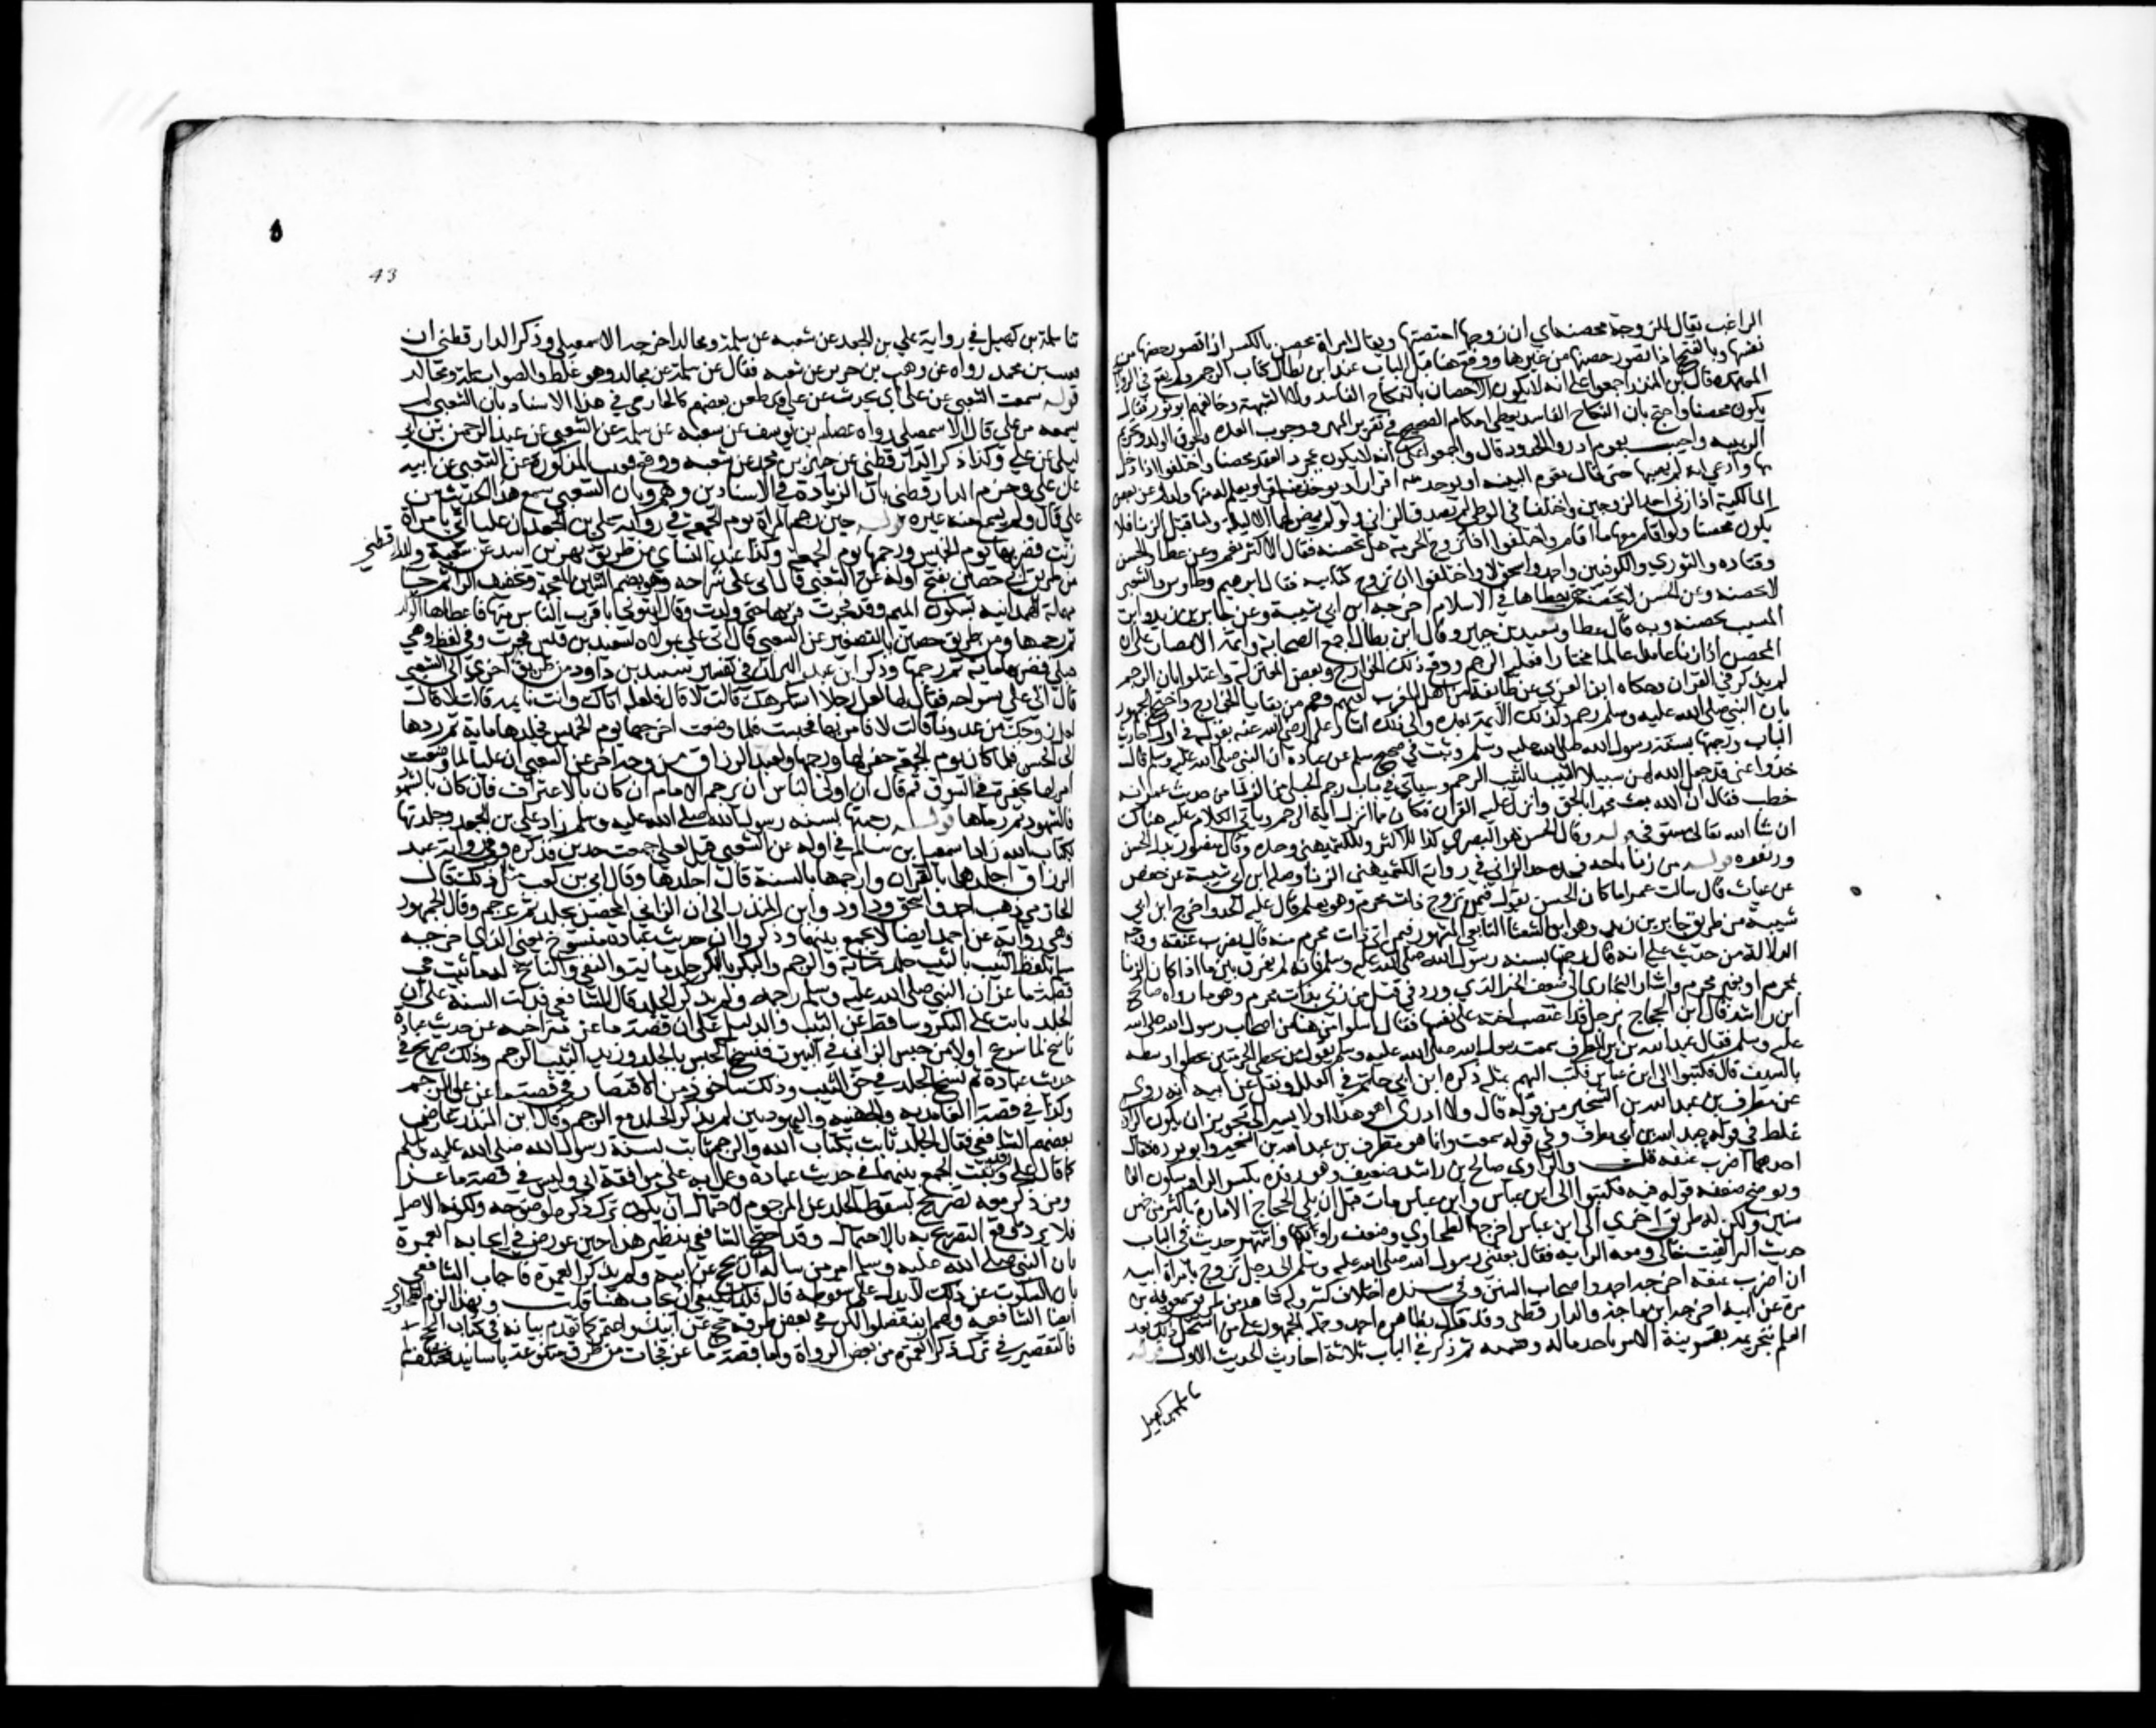 الراغب يقال للمزوجة محصنة اي ان زوجها احصنها ويقال امراة محصن بالكسر اذا تصور حصنها من
نفسها وبالفتح اذا تصور حصنها من غيرها ووقع هنا قبل الباب عند ابن بطال كتاب الرجم ولم يقع في الروايات
المعتمدة قال ابن المنذر اجمعوا على انه لا يكون الاحصان بالنكاح الفاسد ولا الشبهة وخالفهم ابو ثور فقال
يكون محصنا واحتج بان النكاح الفاسد يعطى احكام الصحيح في تقرير المهر ووجوب العدة ولحوق الولد وتحريم
الربيبة واجيب بعموم ادروا الحدود قال واجمعوا على انه لا يكون بمجرد العقد محصنا واختلفوا اذا دخل
بها وادعى انه لم يصبها حتى قال تقوم البينة او يوجد منه اقرار او يعلم له منها ولد وعن بعض
المالكية اذا زنى احد الزوجين واختلفا في الوطء لم يصدق الزاني ولو لم يمض لهما الا ليلة واما قبل الزنا فلا
يكون محصنا ولو اقام معها ما اقام واختلفوا اذا تزوج الحر امة هل تحصنه فقال الاكثر نعم وعن عطا والحسن
وقتادة والثوري والكوفيين واحمد واسحق لا واختلفوا ان تزوج كتابية فقال ابرهيم وطاوس والشعبي
لا تحصنه وعن الحسن لا تحصنه حتى يطاها في الاسلام اخرجه ابن ابي شيبة وعن جابر بن زيد وابن
المسيب تحصنه وبه قال عطا وسعيد بن جبير وقال ابن بطال اجمع الصحابة وائمة الامصار على ان
المحصن اذا زنا عامدا عالما مختارا فعليه الرجم ودفع ذلك الخوارج وبعض المعتزلة واعتلوا بان الرجم
لم يذكر في القران وحكاه ابن العربي عن طائفة من اهل المغرب لقيهم وهم من بقايا الخوارج واحتج الجمهور
بان النبي صلى الله عليه وسلم رجم وكذلك الائمة بعده والى ذلك اشار علي رضي الله عنه بقوله في اول احاديث
الباب رجمتها بسنة رسول الله صلى الله عليه وسلم وثبت في صحيح مسلم عن عبادة ان النبي صلى الله عليه وسلم قال
خذوا عني قد جعل الله لهن سبيلا الثيب بالثيب الرجم وسياتي في باب رجم الحبلى من الزنا من حديث عمر انه
خطب فقال ان الله بعث محمدا بالحق وانزل عليه القران فكان مما انزل اية الرجم وياتي الكلام عليه هناك
ان شا الله تعالى مستوفى قوله وقال الحسن هو البصري كذا للاكثر وللكشميهني وحده وقال منصور بدل الحسن
وزيفوه قوله من زنا باخته فحده حد الزاني في رواية الكشميهني الزنا وصله ابن ابي شيبة عن حفص
عن غياث قال سالت عمر اما كان الحسن يقول فيمن تزوج ذات محرم وهو يعلم قال عليه الحد واخرج ابن ابي
شيبة من طريق جابر بن زيد وهو ابو الشعثا التابعي المشهور فيمن اتى ذات محرم منه قال يضرب عنقه ووجه
الدلالة من حديث علي انه قال رجمتها بسنة رسول الله صلى الله عليه وسلم فانه لم يفرق بين ما اذا كان الزنا
بمحرم او بغير محرم واشار البخاري الى ضعف الخبر الذي ورد في قتل من زنى بذات محرم وهو ما رواه صالح
ابن راشد قال اتي الحجاج برجل قد اغتصب اخته على نفسها فقال سلوا من هنا من اصحاب رسول الله صلى الله
عليه وسلم فقال عبد الله بن ابي المطرف سمعت رسول الله صلى الله عليه وسلم يقول من تخطى الحرمتين فخطوا وسطه
بالسيف قال فكتبوا الى ابن عباس فكتب اليهم بمثله ذكره ابن ابي حاتم في العلل ونقل عن ابيه انه روى
عن مطرف بن عبد الله بن الشخير من قوله قال ولا ادري اهو هذا او لا يشير الى تجويز ان يكون الراوي
غلط في قوله عبد الله بن ابي مطرف وفي قوله سمعت وانما هو مطرف بن عبد الله بن الشخير
احدهما اضرب عنقه قلت والراوي صالح بن راشد ضعيف وهو رفدة بكسر الرا وسكون الفا
ويوضح ضعفه قوله فيه فكتبوا الى ابن عباس وابن عباس مات قبل ان يلي الحجاج الامارة باكثر من خمس
سنين ولكن له طريق اخرى الى ابن عباس اخرجها الطحاوي وضعف راويها واشهر حديث في الباب
حديث البرا لقيت خالي ومعه الراية فقال بعثني رسول الله صلى الله عليه وسلم الى رجل تزوج بامراة ابيه
ان اضرب عنقه اخرجه احمد واصحاب السنن وفي سنده اختلاف كثير وله شاهد من طريق معوية بن
مرة عن ابيه اخرجه ابن ماجه والدار قطني وقد قال بظاهره احمد وحمله الجمهور على من استحل ذلك بعد
العلم بتحريمه بقرينة الامر باخذ ماله وقسمته ثم ذكر في الباب ثلاثة احاديث الحديث الاول قوله
نا سلمة بن كهيل
43
نا سلمة بن كهيل في رواية علي بن الجعد عن شعبة عن سلمة ومجالد اخرجه الاسمعيلي وذكر الدار قطني ان
بن محمد رواه عن وهب بن جرير عن شعبة فقال عن سلمة عن مجالد وهو غلط والصواب سلمة ومجالد
قوله سمعت الشعبي عن علي اي يحدث عن علي وقد طعن بعضهم كالحازمي في هذا الاسناد بان الشعبي لم
يسمعه من علي قال الاسمعيلي رواه عصام بن يوسف عن شعبة عن سلمة عن الشعبي عن عبد الرحمن بن ابي
ليلى عن علي وكذا ذكر الدار قطني عن حسين بن محمد عن شعبة ووقع في المذكورة عن الشعبي عن ابيه
عن علي وجزم الدار قطني بان الزيادة في الاسنادين وهم وبان الشعبي سمع هذا الحديث من
علي قال ولم يسمع منه غيره قوله حين رجم المراة يوم الجمعة في رواية علي بن الجعد ان عليا اتي بامراة
زنت فضربها يوم الخميس ورجمها يوم الجمعة وكذا عند النساي من طريق بهز بن اسد عن شعبة وللدار قطني
من طريق ابي حصين بفتح اوله عن الشعبي قال اتي علي بشراحة وهو بضم الشين المعجمة وتخفيف الرا ثم حا
مهملة الهمدانية بسكون الميم وقد فجرت فردها حتى ولدت وقال ائتوني باقرب الناس منها فاعطاها الولد
ثم رجمها ومن طريق حصين بالتصغير عن الشعبي قال اتي علي بمولاة لسعيد بن قيس فجرت وفي لفظ وهي
حبلى فضربها ماية ثم رجمها وذكر ابن عبد البر ان في تفسير سنيد بن داود من طريق اخرى الى الشعبي
قال اتى علي بشراحة فقال لها لعل رجلا استكرهك قالت لا قال فلعله اتاك وانت نايمة قالت لا قال
لعل زوجك من عدونا قالت لا فامر بها فحبست فلما وضعت اخرجها يوم الخميس فجلدها ماية ثم ردها
الى الحبس فلما كان يوم الجمعة حفر لها ورجمها ولعبد الرزاق من وجه اخر عن الشعبي ان عليا لما وضعت
امر لها بحفرة في السوق ثم قال ان اولى الناس ان يرجم الامام ان كان بالاعتراف فان كان بالشهود
فالشهود ثم رماها قوله رجمتها بسنة رسول الله صلى الله عليه وسلم زاد علي بن الجعد وجلدتها
بكتاب الله زاد اسمعيل بن سالم في اوله عن الشعبي قيل لعلي جمعت حدين فذكره وفي رواية عبد
الرزاق اجلدها بالقران وارجمها بالسنة قال احلدها وقال ابي بن كعب مثل ذلك قال
الحازمي ذهب احمد واسحق وداود وابن المنذر الى ان الزاني المحصن يجلد ثم يرجم وقال الجمهور
وهي رواية عن احمد ايضا لا يجمع بينهما وذكروا ان حديث عبادة منسوخ يعني الذي اخرجه
مسلم بلفظ الثيب بالثيب جلد ماية والرجم والبكر بالبكر جلد ماية والنفي والناسخ له ما ثبت في
قصة ماعز ان النبي صلى الله عليه وسلم رجمه ولم يذكر الجلد قال الشافعي فدلت السنة على ان
الجلد ثابت على البكر وساقط عن الثيب والدليل على ان قصة ماعز متراخية عن حديث عبادة
ناسخ لما شرع اولا من حبس الزاني في البيوت فنسخ الحبس بالجلد وزيد الثيب الرجم وذلك صريح في
حديث عبادة ثم نسخ الجلد في حق الثيب وذلك ماخوذ من الاقتصار في قصة ماعز على الرجم
وكذا في قصة الغامدية والجهنية واليهوديين لم يذكر الجلد مع الرجم وقال ابن المنذر عارض
بعضهم الشافعي فقال الجلد ثابت بكتاب الله والرجم ثابت بسنة رسول الله صلى الله عليه وسلم
كما قال علي وقد ثبت الجمع بينهما في حديث عبادة وعمل به علي ووافقه ابي وليس في قصة ماعز
ومن ذكر معه تصريح بسقوط الجلد عن المرجوم لاحتمال ان يكون ترك ذكره لوضوحه ولكونه الاصل
فلا يرد ما وقع التصريح به بالاحتمال وقد احتج الشافعي بنظير هذا حين عورض في ايجابه العمرة
بان النبي صلى الله عليه وسلم امر من ساله ان يحج عن ابيه ولم يذكر العمرة فاجاب الشافعي
بان السكوت عن ذلك لا يدل على سقوطه قال فكذا ينبغي ان يجاب هنا قلت وبهذا الزم الطحاوي
ايضا الشافعية ولهم ان ينفصلوا لكن في بعض طرقه حج عن ابيك واعتمر كما تقدم بيانه في كتاب الحج
فالتقصير في ترك ذكر العمرة من بعض الرواة واما قصة ماعز فجات من طرق متنوعة باسانيد مختلفة